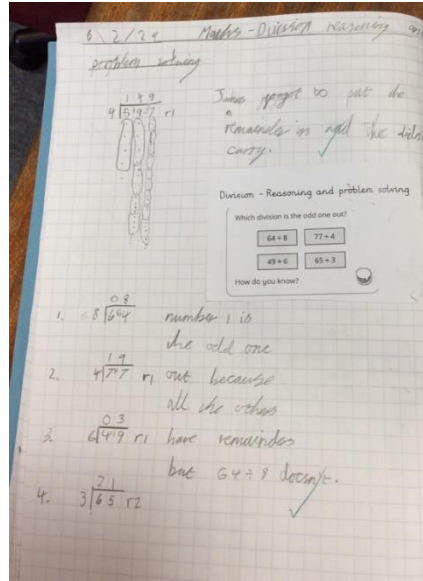 6 \ 2 / 24 Maths - Division reasoning and
problem solving
1 4 9
4 5 9 7 r1
James forgot to put the
remainder in and he didn't
carry.
Division - Reasoning and problem solving
Which division is the odd one out?
64 ÷ 8 77 ÷ 4
49 ÷ 6 65 ÷ 3
How do you know?
0 8
1. 8 6 64 number 1 is
the odd one
1 9
2. 4 7 37 r1 out because
all the others
0 3
3. 6 4 49 r1 have remainders
but 64 ÷ 8 doesn't.
2 1
4. 3 6 5 r2